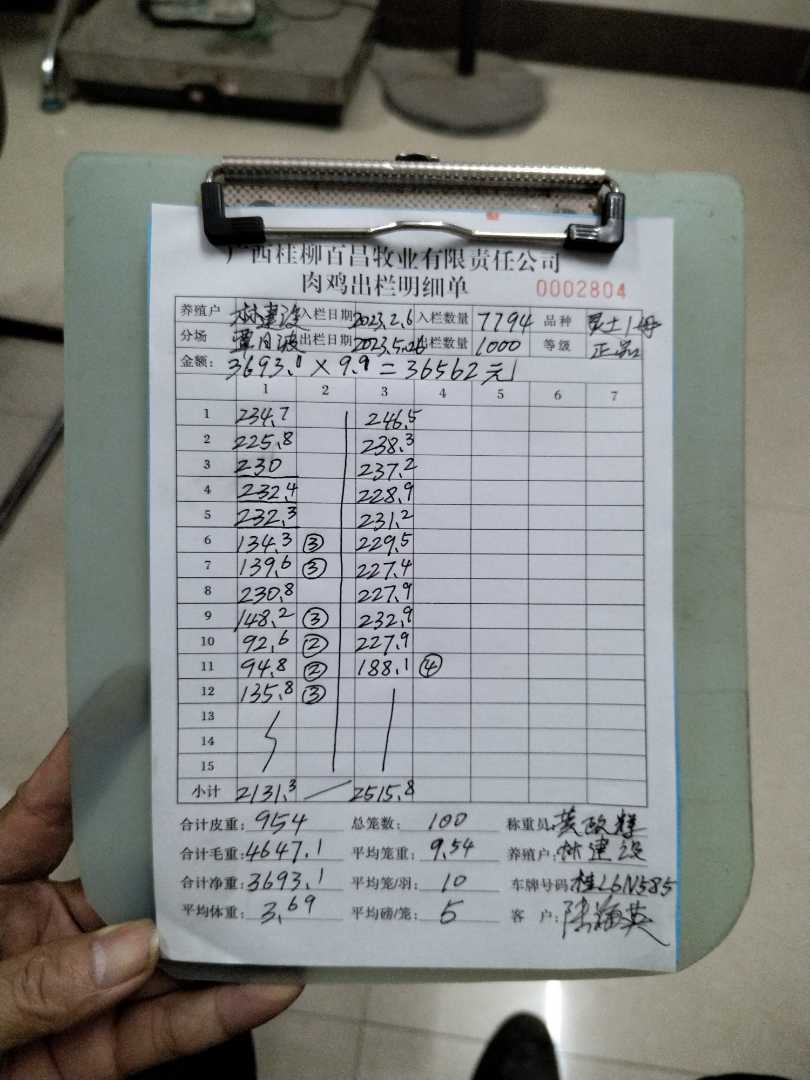 广西桂柳百昌牧业有限责任公司
肉鸡出栏明细单 0002804
养殖户 林建设 入栏日期 2023.2.6 入栏数量 7794 品种
分场 出栏日期 2023.5.26 出栏数量 1000 等级 正品
金额: 3693.1 × 9.9 = 36562元
1 2 3 4 5 6 7
1 234.7 246.5
2 225.8 238.3
3 230 237.2
4 232.4 228.9
5 232.3 231.2
6 134.3 ③ 229.5
7 139.6 ③ 227.4
8 230.8 227.9
9 148.2 ③ 232.9
10 92.6 ② 227.9
11 94.8 ② 188.1 ④
12 135.8 ③
13
14
15
小计 2131.3 2515.8
合计皮重: 954 总笼数: 100 称重员:
合计毛重: 4647.1 平均笼重: 9.54 养殖户: 林建设
合计净重: 3693.1 平均笼/羽: 10 车牌号码: 桂L6N585
平均体重: 3.69 平均磅/笼: 5 客户: 陆海英